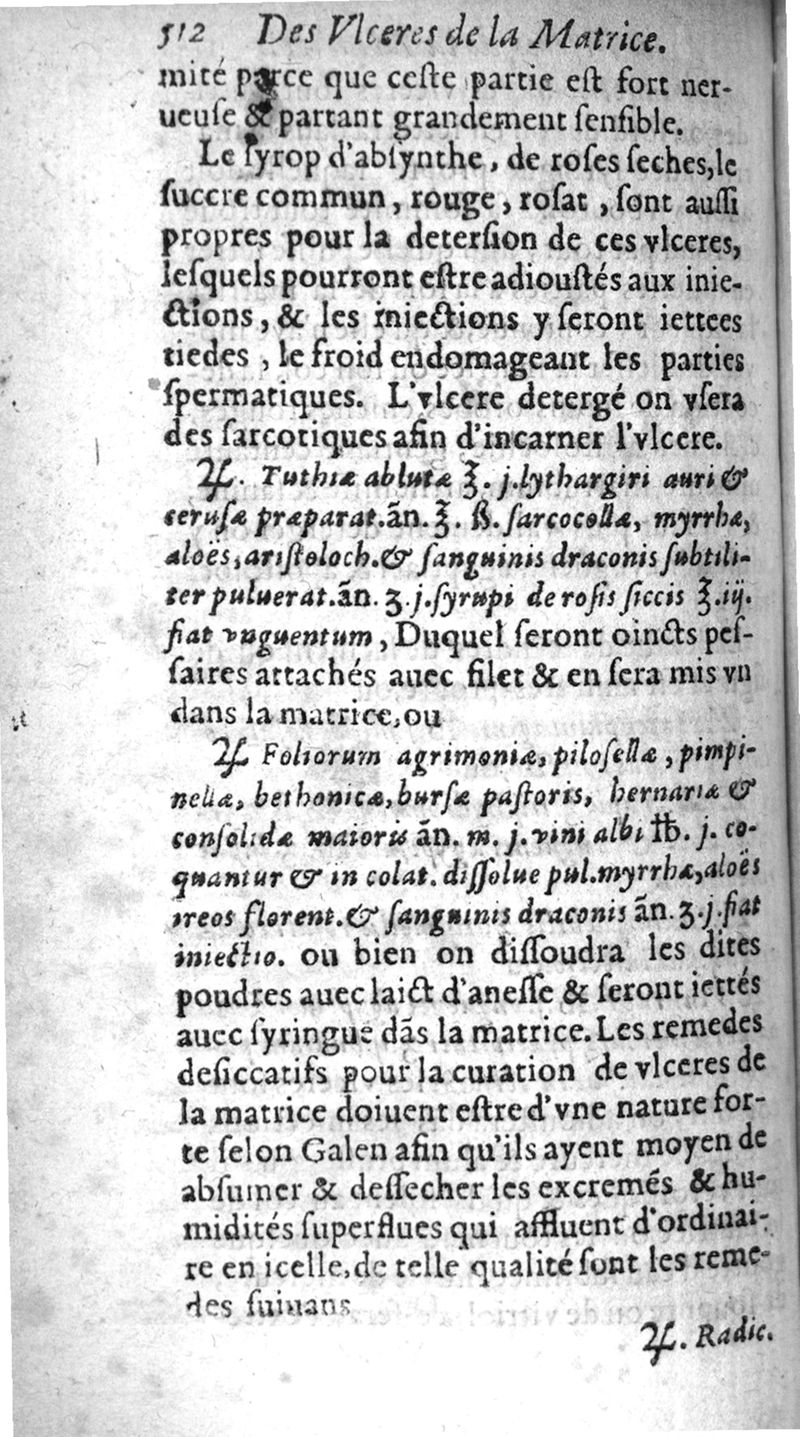 512 Des Vlceres de la Matrice.
mité parce que ceſte partie eſt fort ner-
ueuſe & partant grandement ſenſible.
Le ſyrop d'abſynthe, de roſes ſeches, le
ſuccre commun, rouge, roſat, ſont auſſi
propres pour la deterſion de ces vlceres,
leſquels pourront eſtre adiouſtés aux inie-
ctions, & les iniections y ſeront iettees
tiedes, le froid endomageant les parties
ſpermatiques. L'vlcere detergé on vſera
des ſarcotiques afin d'incarner l'vlcere.
♃. Tuthiæ ablutæ ℥. j. lythargiri auri &
ceruſæ præparat. ãn. ℥. ß. ſarcocollæ, myrrhæ,
aloës, ariſtoloch. & ſanguinis draconis ſubtili-
ter puluerat. ãn. ʒ. j. ſyrupi de roſis ſiccis ℥. iij.
fiat vnguentum, Duquel ſeront oincts peſ-
ſaires attachés auec filet & en ſera mis vn
dans la matrice, ou
♃ Foliorum agrimoniæ, piloſellæ, pimpi-
nellæ, bethonicæ, burſæ paſtoris, hernariæ &
conſolidæ maioris ãn. m. j. vini albi ℔. j. co-
quantur & in colat. diſſolue pul. myrrhæ, aloës
ireos florent. & ſanguinis draconis ãn. ʒ. j. fiat
iniectio. ou bien on diſſoudra les dites
poudres auec laict d'aneſſe & ſeront iettés
auec ſyringue dãs la matrice. Les remedes
deſiccatifs pour la curation de vlceres de
la matrice doiuent eſtre d'vne nature for-
te ſelon Galen afin qu'ils ayent moyen de
abſumer & deſſecher les excremés & hu-
midités ſuperflues qui affluent d'ordinai-
re en icelle, de telle qualité ſont les reme-
des ſuiuans
♃. Radic.